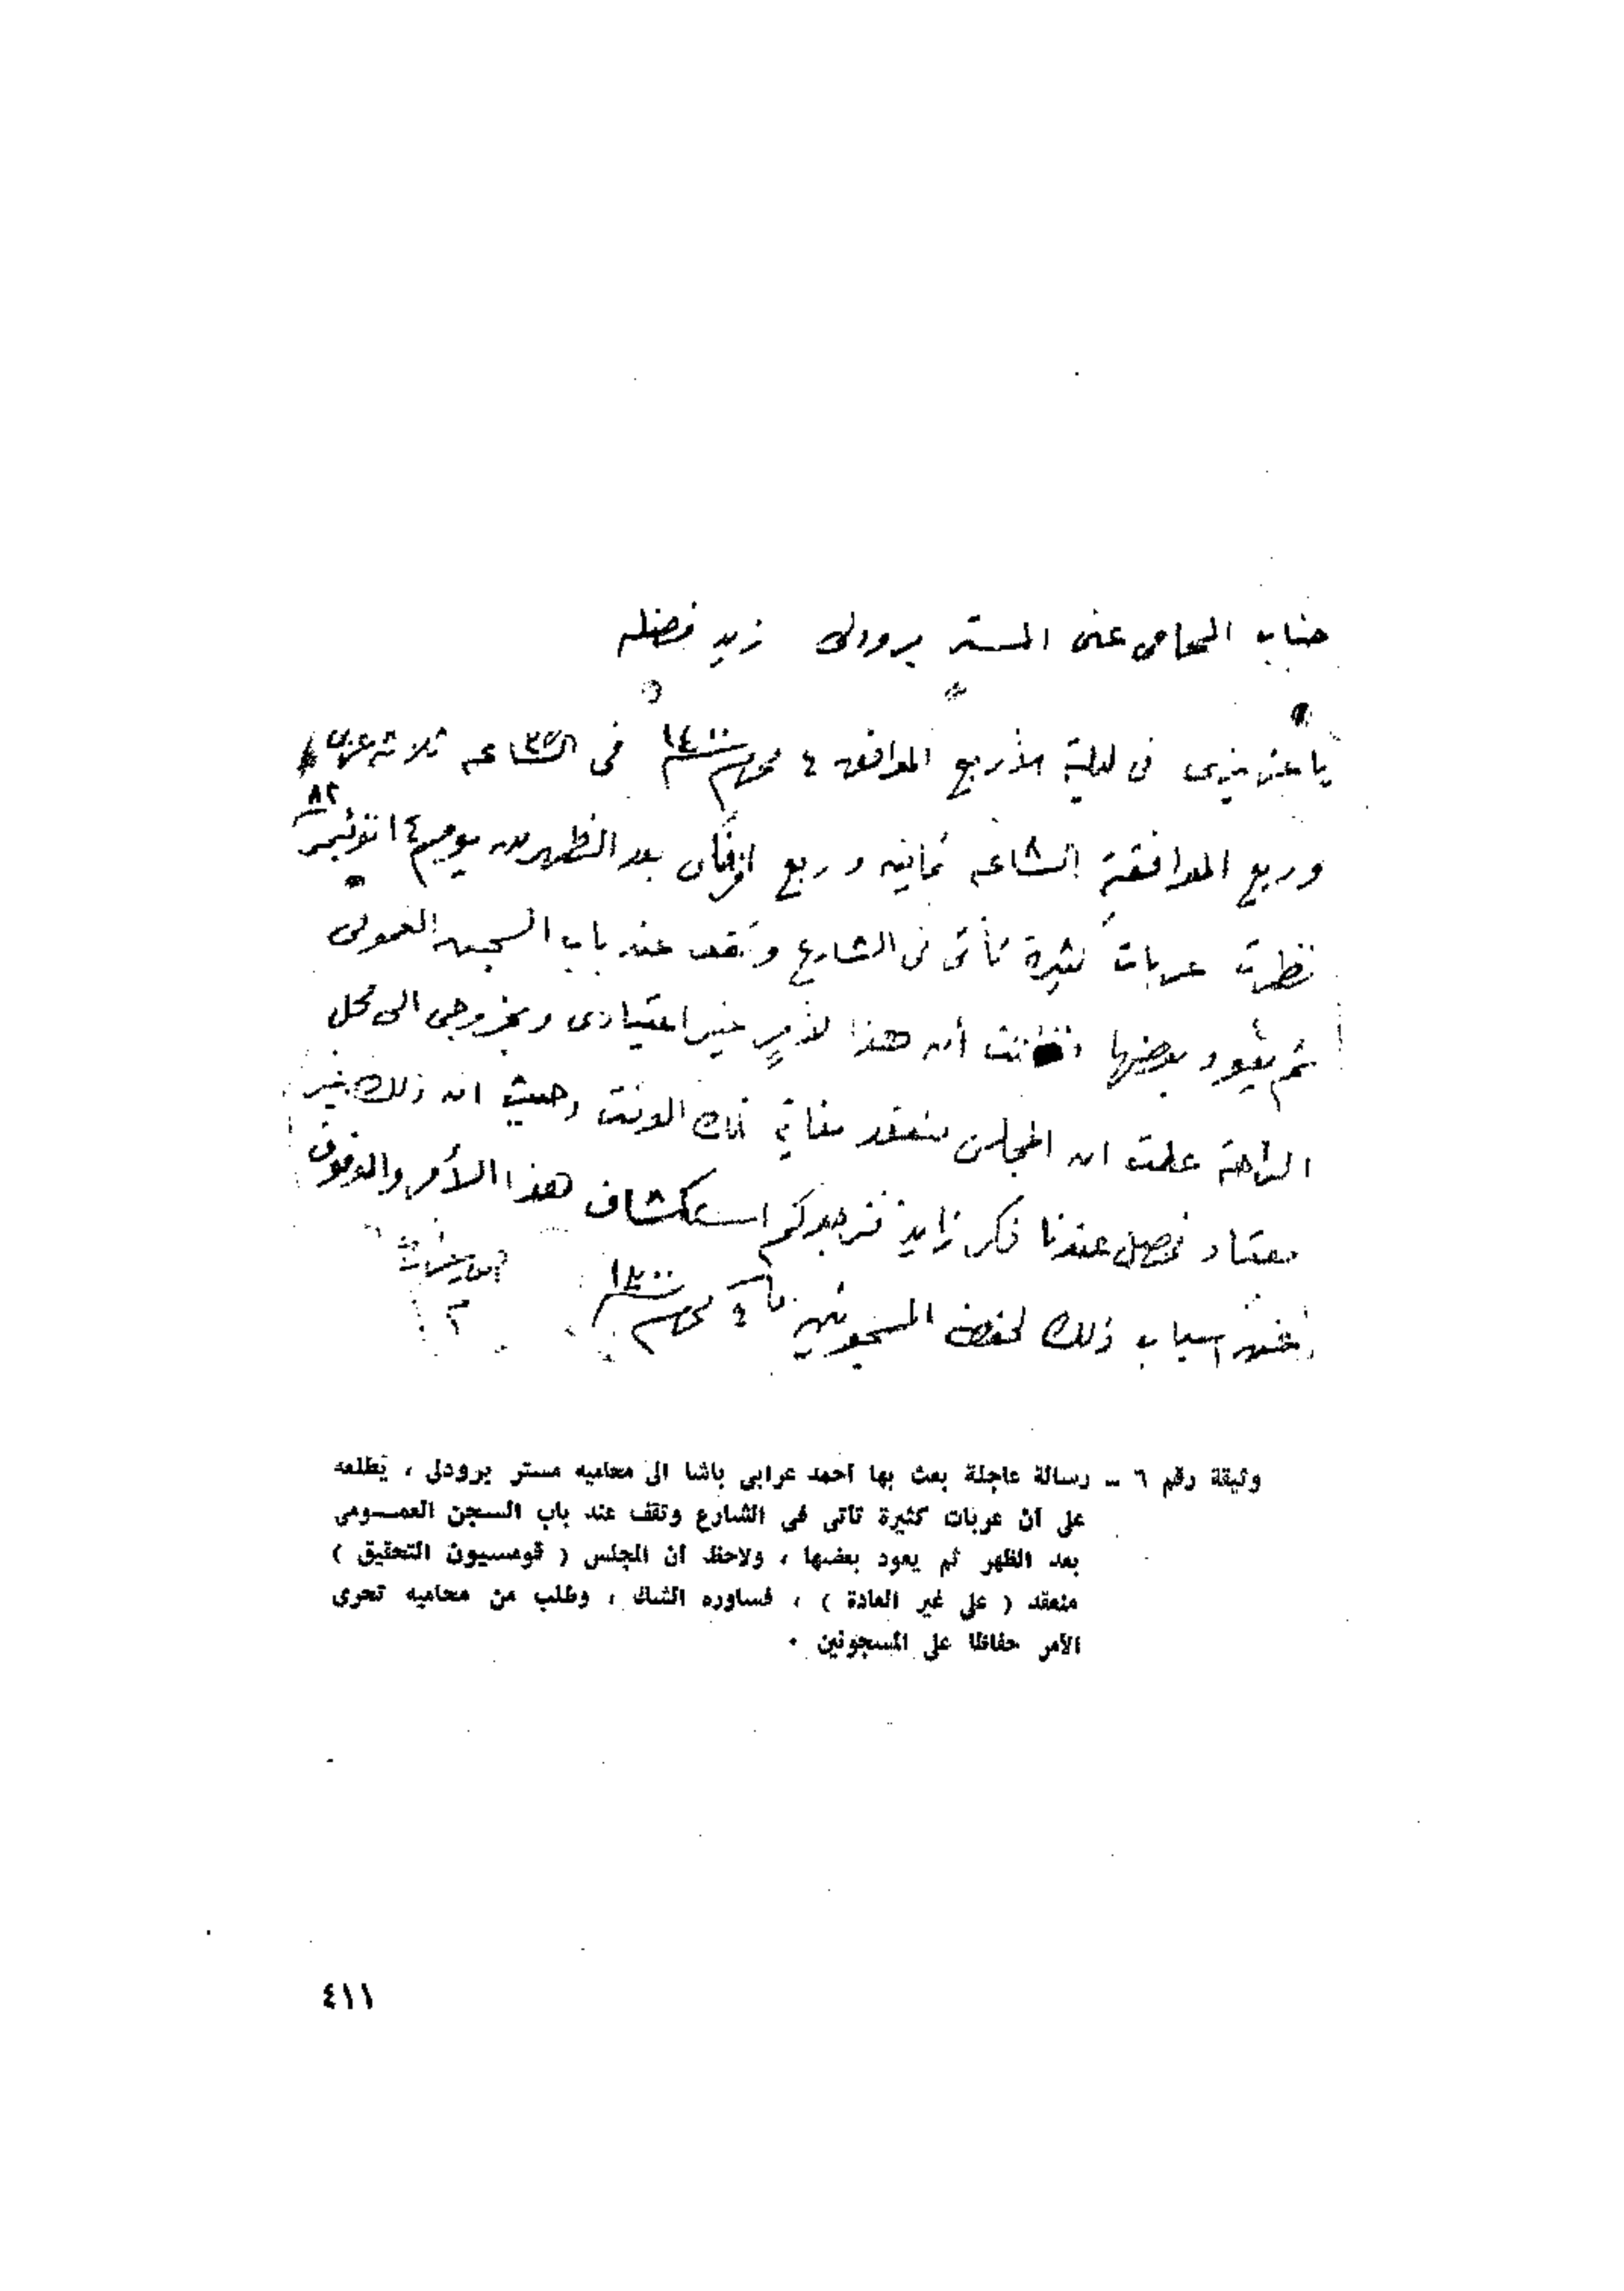 جناب المحامى عنى المستر برودلى زيد فضله
يا عزيزى فى ليلة الأربع الموافق ٤ محرم ١٣٠٠ فى الساعه ثلاثه عربى
وربع الموافقة الساعه ثمانيه وربع افرنكى بعد الظهر من يوم ١٤ نوفمبر ٨٢
نظرت عربات كثيرة تأتى فى الشارع وتقف عند باب السجن العمومى
ثم يعود بعضها فظننت أن هذا لأمرٍ غير اعتيادى وبخروجى الى محل
الراحة علمت ان المجلس منعقد لغاية ذلك الوقت وحيث ان ذلك بغير
معتاد فحصل عندنا فكر زايد فنرجوكم استكشاف هذا الأمر والوقوف
اسباب ذلك لحفظ المسجونين ٤ محرم ١٣٠٠
وثيقة رقم ٦ ــ رسالة عاجلة بعث بها احمد عرابى باشا الى محاميه مستر برودلى ، يُطلعه
على أن عربات كثيرة تأتى فى الشارع وتقف عند باب السجن العمـومى
بعد الظهر ثم يعود بعضها ، ولاحظ أن المجلس ( قومسيون التحقيق )
منعقد ( على غير العادة ) ، فساوره الشك ، وطلب من محاميه تحرى
الأمر حفاظا على المسجونين .
٤١١